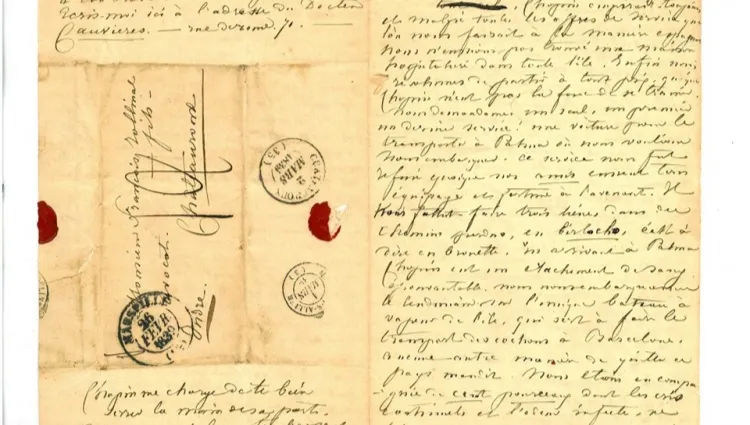 Ecris-moi ici à l'adresse du Docteur
Cauvières. — rue de rome. 71.
Monsieur François Rollinat
fils
avocat.
Châteauroux
Indre
MARSEILLE
26
FEVR
1839
CHATEAUROUX
2
MARS
1839
(35)
1
MARS
Chopin me charge de te bien
serrer la main de sa part.
Chopin
et malgré toutes les offres de service que
l'on nous faisait à la manière espagnole
nous n'eussions pas trouvé une maison
hospitalière dans toute l'île. Enfin nous
résolumes de partir à tout prix, quoique
Chopin n'eut pas la force de se traîner.
Nous demandames un seul, un premier
un dernier service! une voiture pour le
transporter à Palma où nous voulions
nous embarquer. Ce service nous fut
refusé quoique nos amis eussent tous
équipage et fortune à l'avenant. Il
nous fallut faire trois lieues dans des
chemins perdus, en birlocho, c'est à
dire en brouette. En arrivant à Palma
Chopin eut un crachement de sang
épouvantable. nous nous embarquames
le lendemain sur l'unique bateau à
vapeur de l'île, qui sert à faire le
transport des cochons à Barcelone.
aucune autre manière de quitter ce
pays maudit. Nous étions en compa
gnie de cent pourceaux dont les cris
continuels et l'odeur infecte, ne